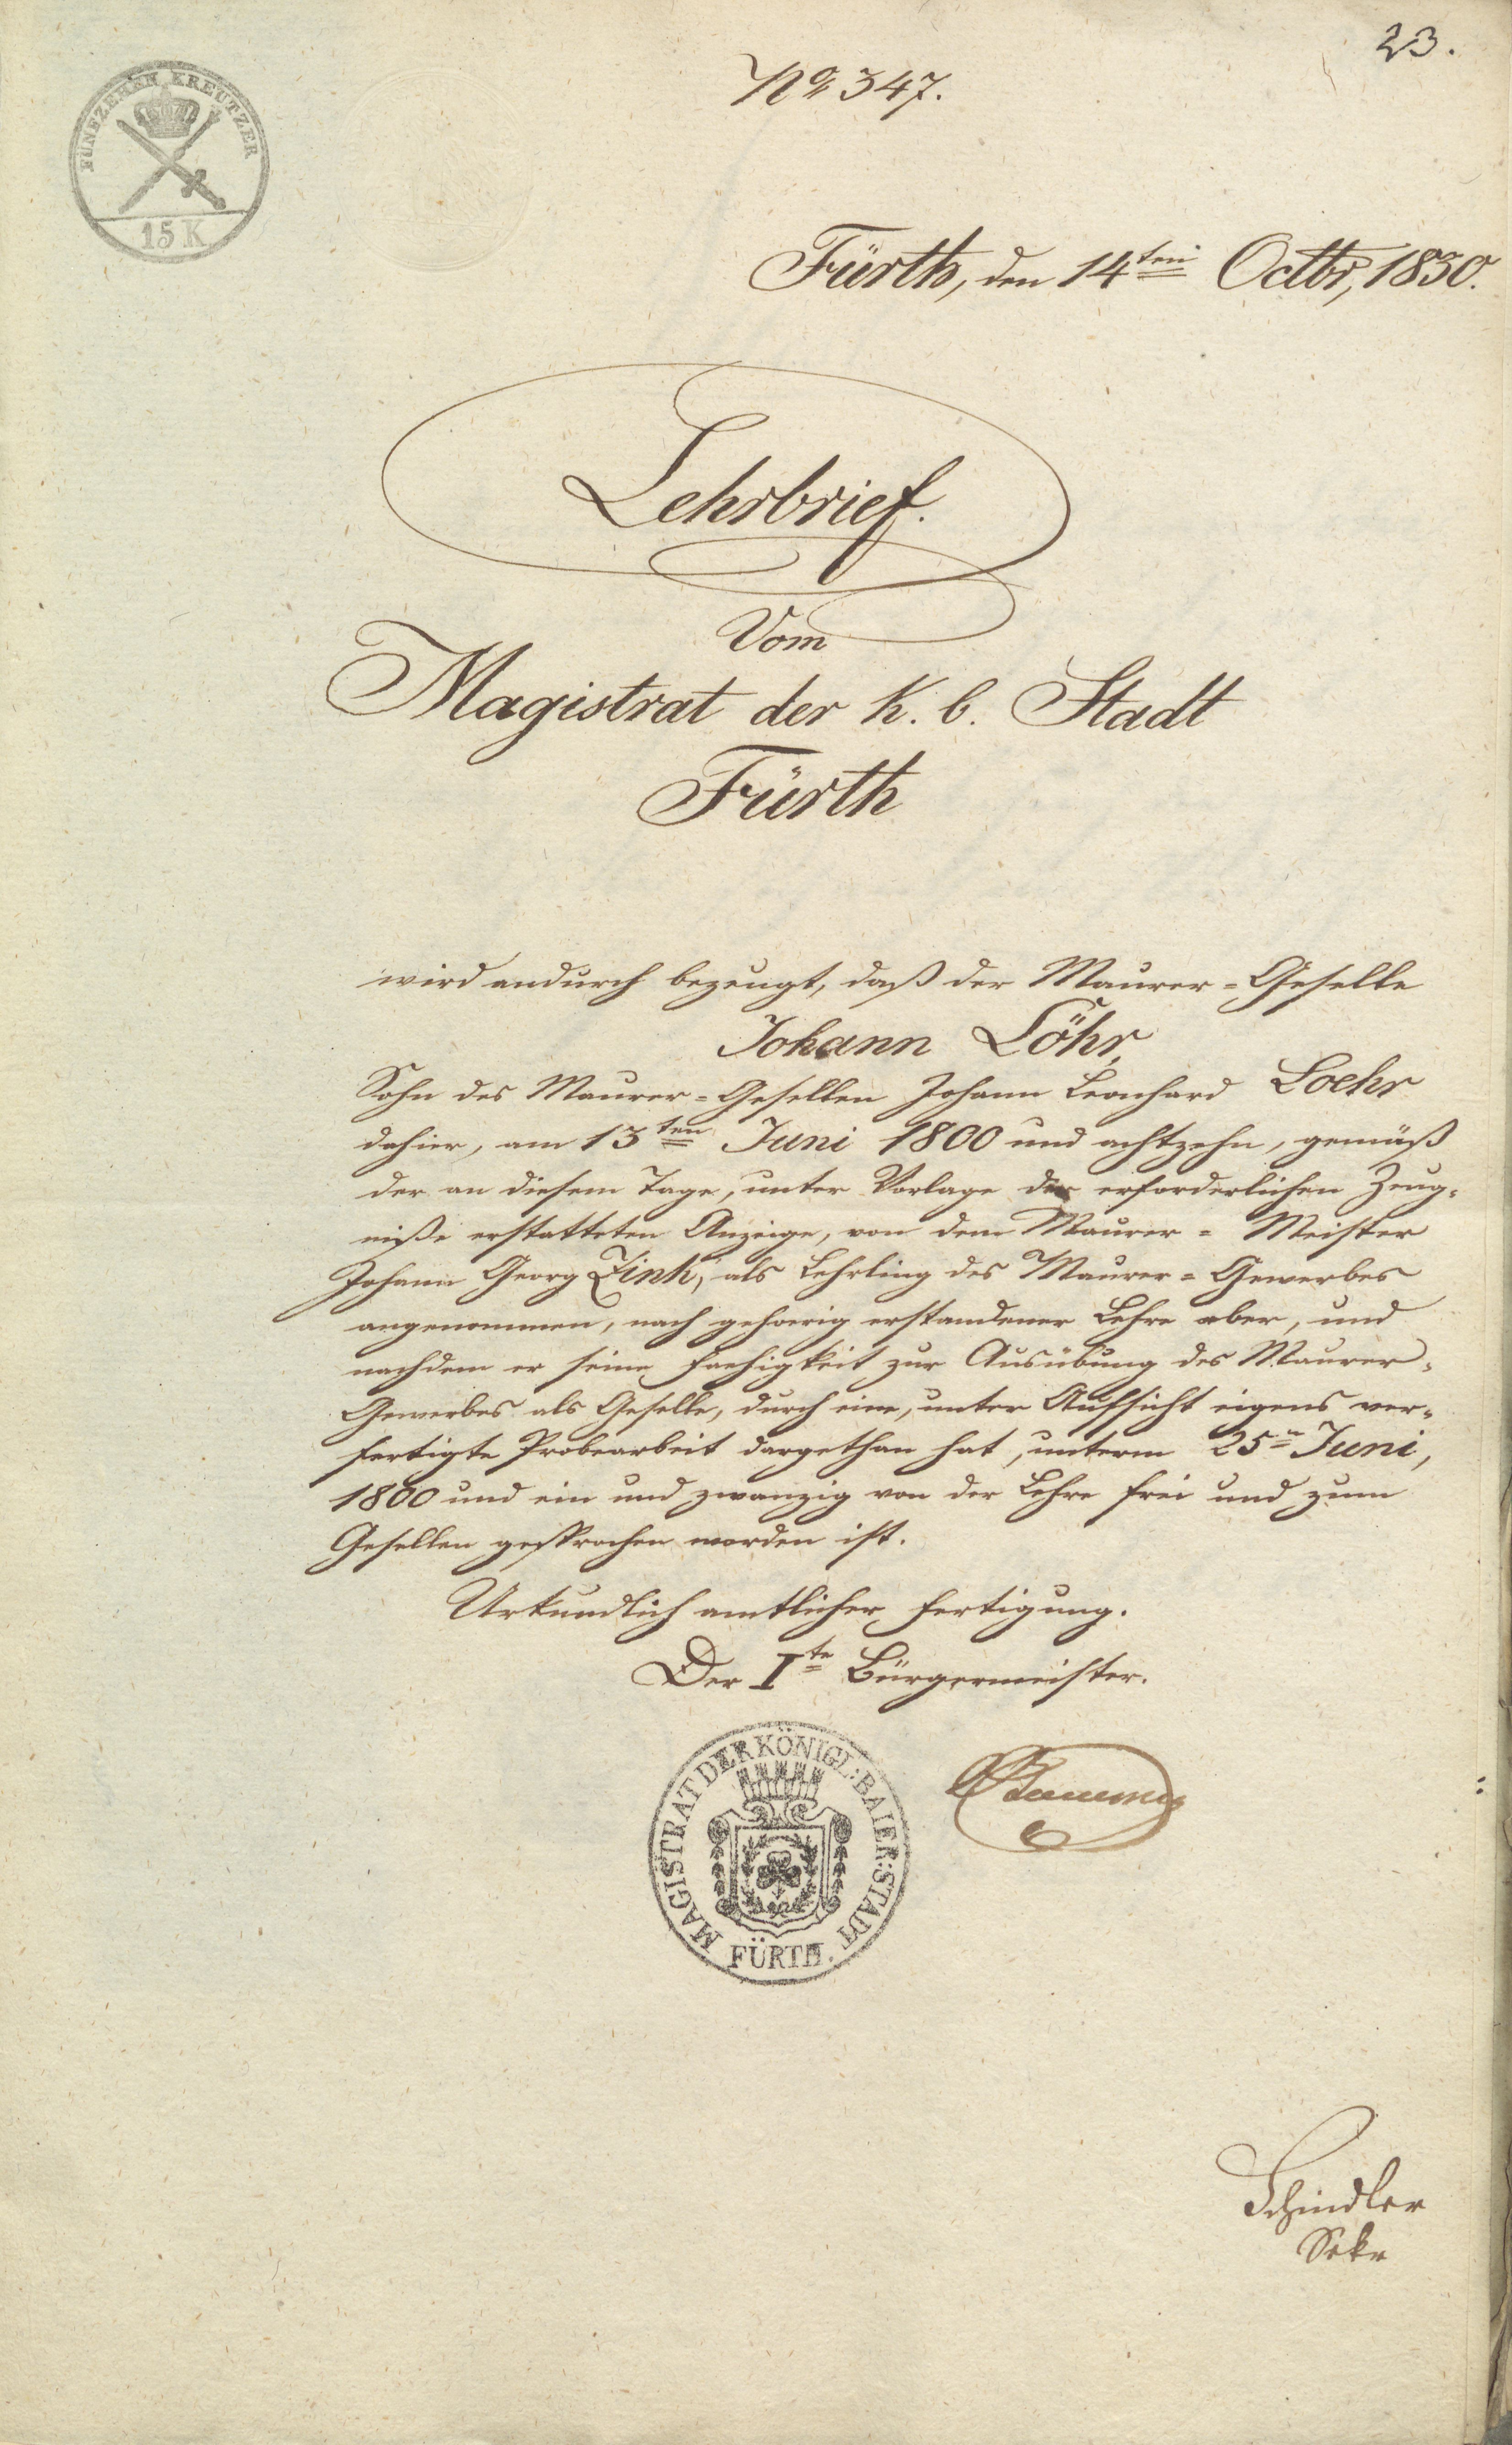 23.
No 347.
FÜNFZEHEN KREUTZER
15 K
Fürth, den 14ten Octbr, 1830.
Lehrbrief.
Vom
Magistrat der K. b. Stadt
Fürth
wird andurch bezeugt, daß der Maurer=Geselle
Johann Löhr,
Sohn des Maurer=Gesellen Johann Leonhard Loehr
dahier, am 13ten Juni 1800 und achtzehn, gemäß
der an diesem Tage, unter Vorlage der erforderlichen Zeug=
niße erstatteten Anzeige, von dem Maurer=Meister
Johann Georg Zink, als Lehrling des Maurer=Gewerbes
angenommen, nach gehoerig erstandener Lehre aber, und
nachdem er seine Faehigkeit zur Ausübung des Maurer=
Gewerbes als Geselle, durch eine, unter Aufsicht eigens ver=
fertigte Probearbeit dargethan hat, unterm 25n Juni,
1800 und ein und zwanzig von der Lehre frei und zum
Gesellen gesprochen worden ist.
Urkundlich amtlicher Fertigung.
Der Ite Bürgermeister.
MAGISTRAT DER KÖNIGL: BAIER: STADT
FÜRTH.
Schindler
Sekr